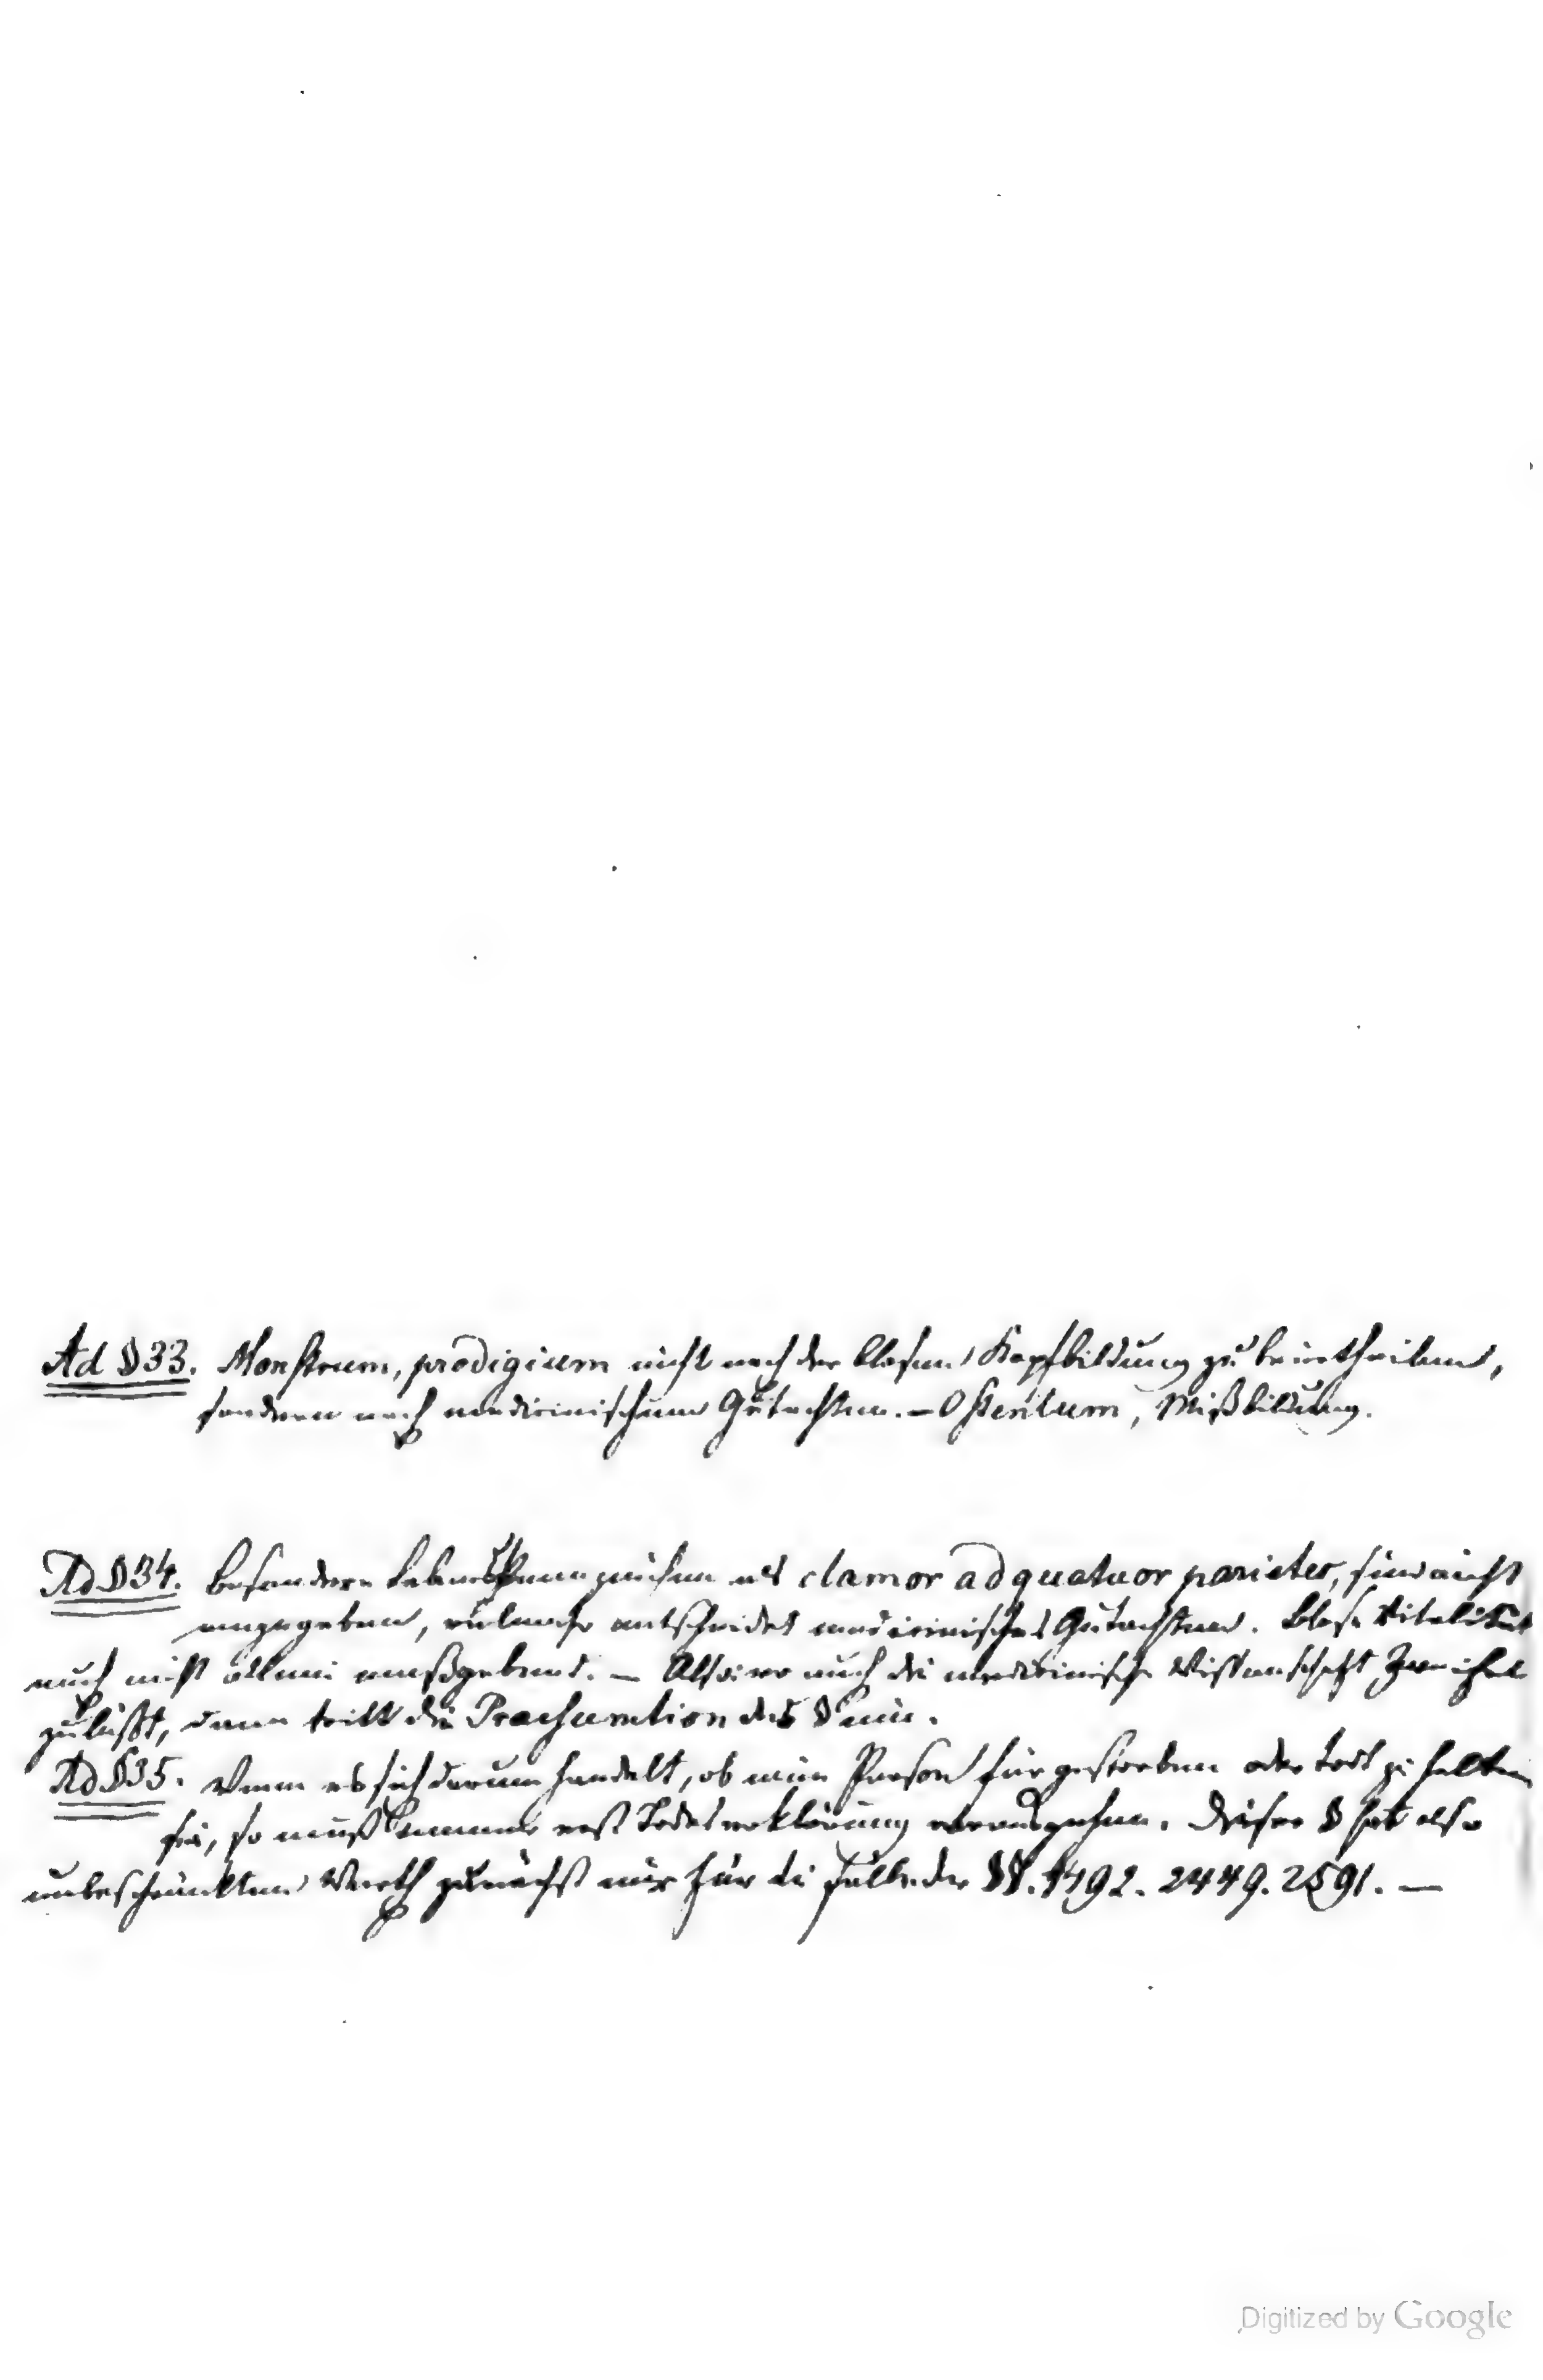 Ad § 33. Monstrum, prodigium nicht nach der blosen Kopfbildung zu beurtheilen,
sondern nach medicinischem Gutachten. – Ostentum, Mißbildung.
Ad § 34. Besondere Lebenskennzeichen als clamor ad quatuor parietes, sind nicht
angegeben, vielmehr entscheidet medicinisches Gutachten. Blose Vitalität
auch nicht allein maßgebend. – Also: wo auch die medicinische Wissenschaft Zweifel
zuläßt, dann tritt die Praesumtion des § ein.
Ad § 35. Wenn es sich darum handelt, ob eine Person für gestorben oder todt zu halten
sei, so muß immer erst Todeserklärung vorausgehen. Dieser § hat also
unbeschränkten Werth zunächst nur für die Fälle der §§. 1492. 2449. 2591. —
Digitized by Google